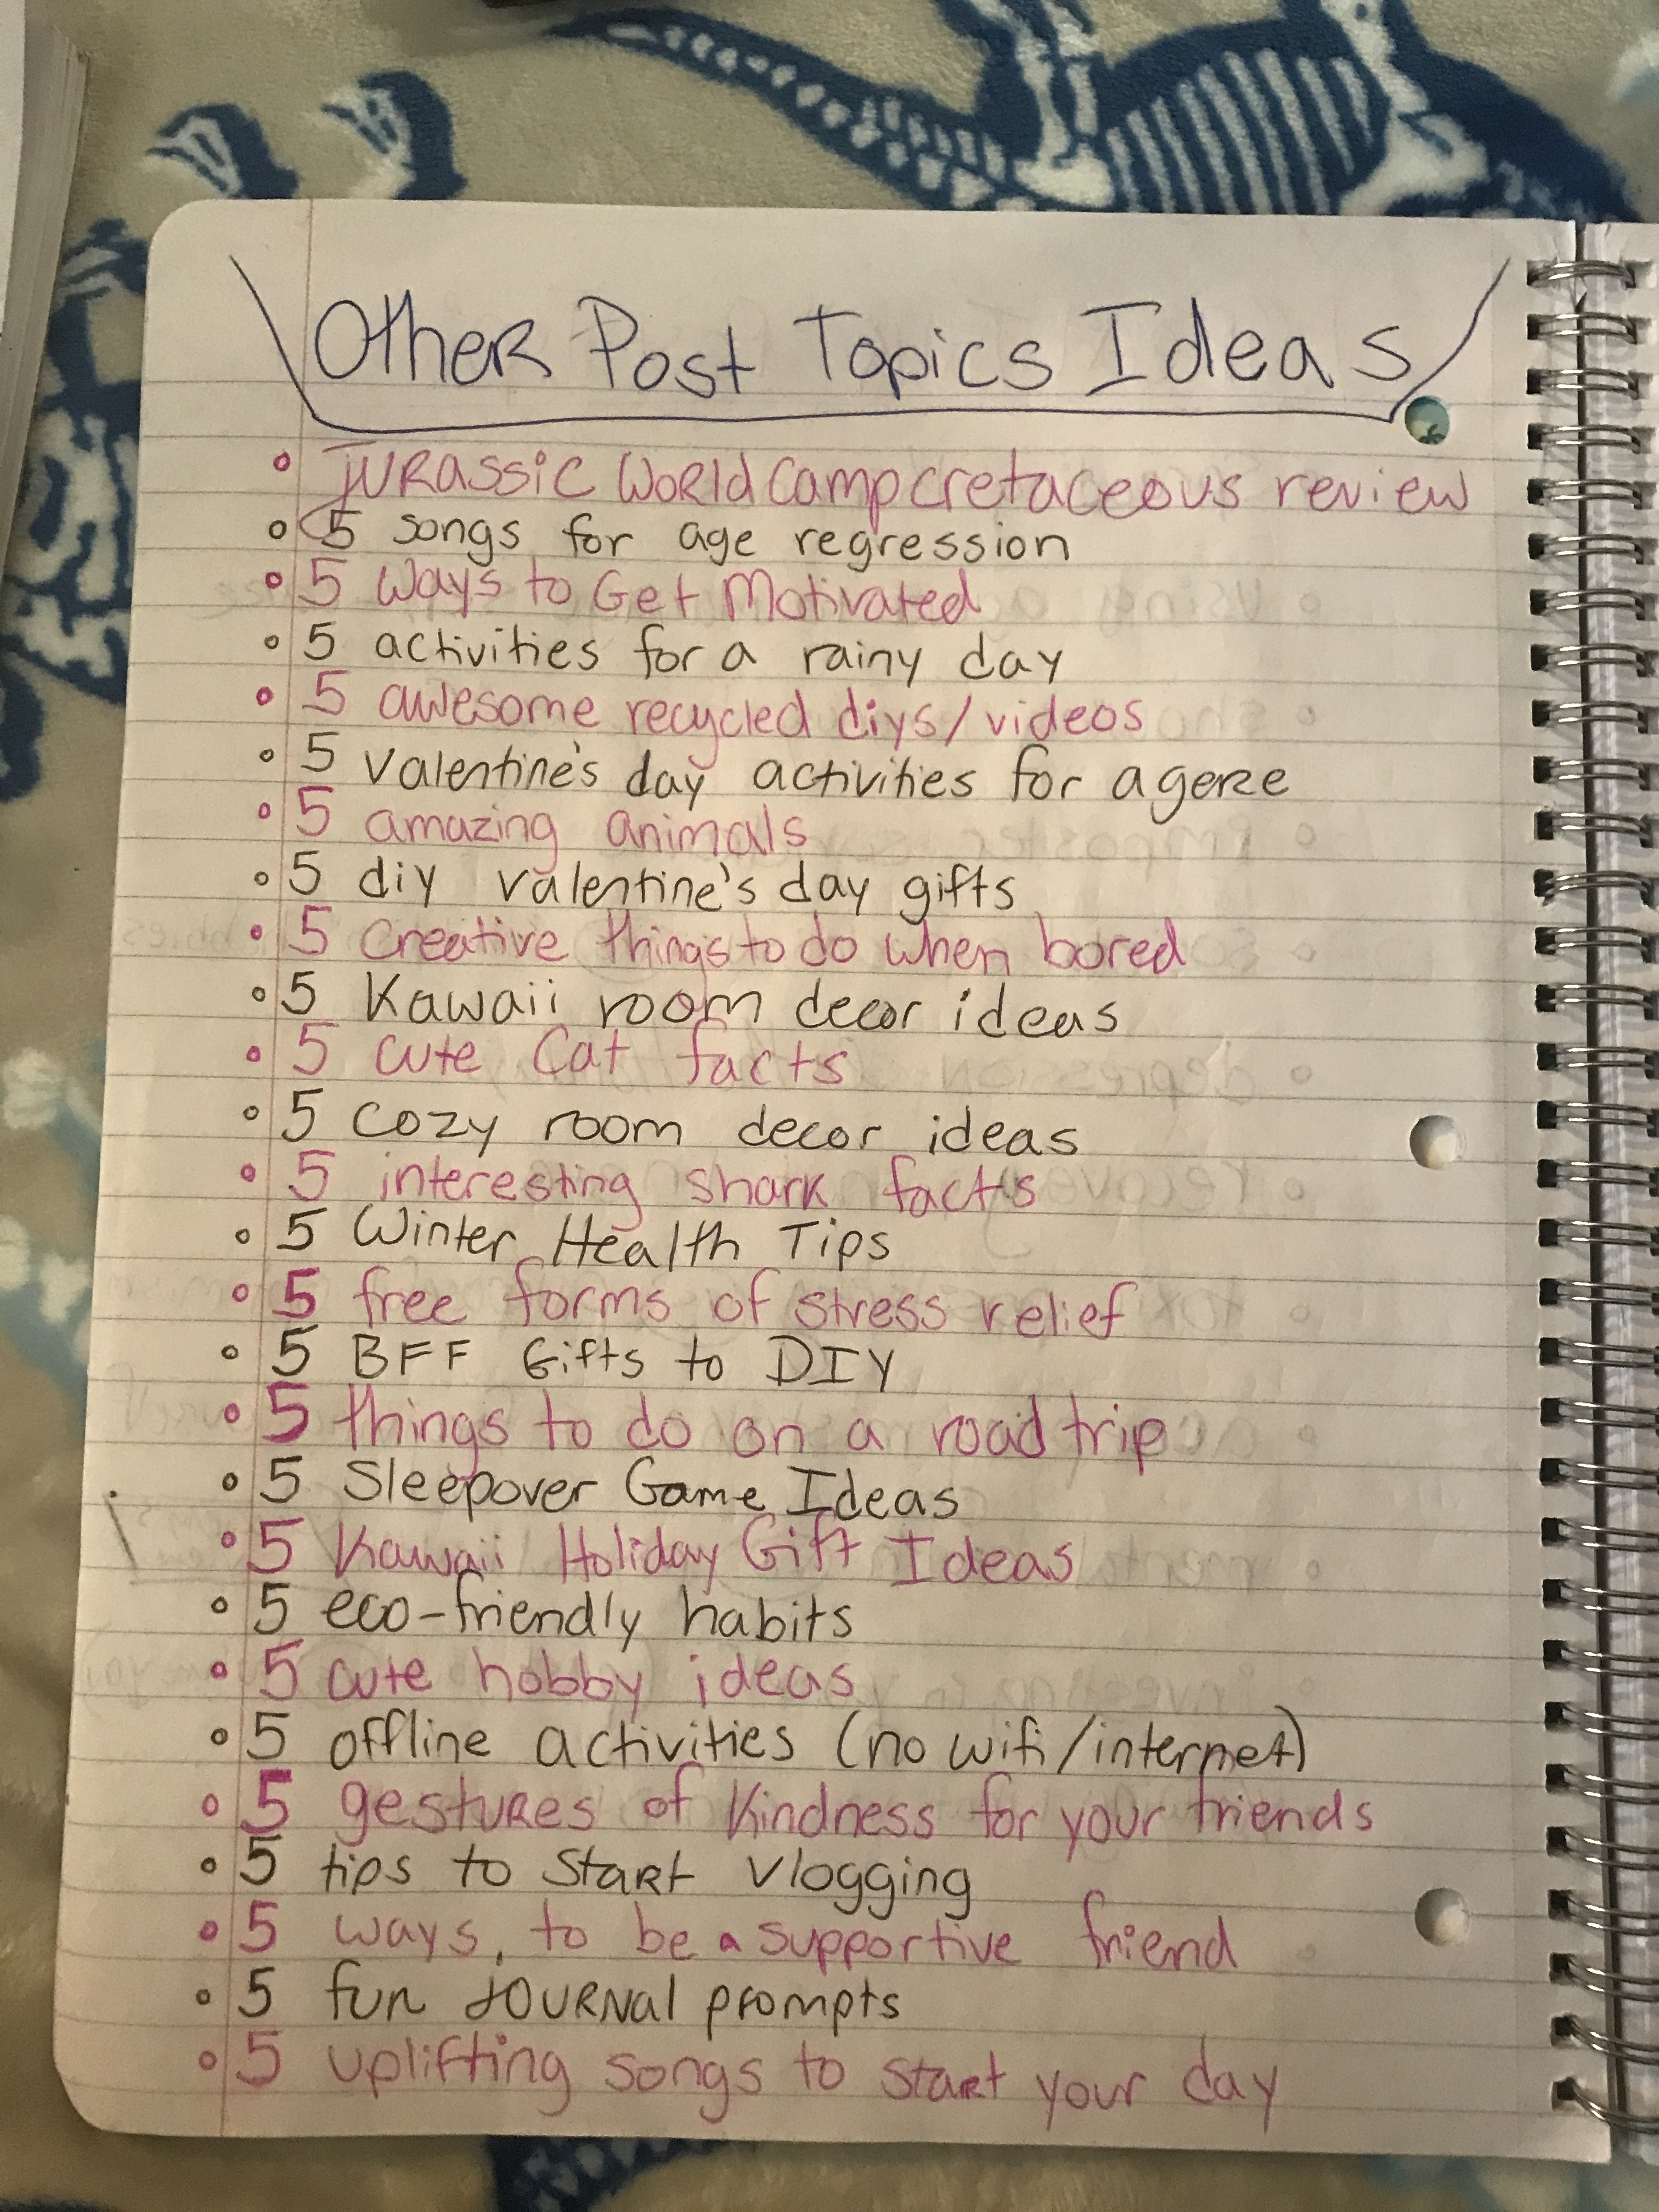 Other Post Topics Ideas
• Jurassic World Camp cretaceous review
• 5 songs for age regression
• 5 Ways to Get Motivated
• 5 activities for a rainy day
• 5 awesome recycled diys/videos
• 5 Valentine's day activities for agere
• 5 amazing animals
• 5 diy valentine's day gifts
• 5 creative things to do when bored
• 5 Kawaii room decor ideas
• 5 cute Cat facts
• 5 cozy room decor ideas
• 5 interesting shark facts
• 5 Winter Health Tips
• 5 free forms of stress relief
• 5 BFF Gifts to DIY
• 5 things to do on a road trip
• 5 Sleepover Game Ideas
• 5 Kawaii Holiday Gift Ideas
• 5 eco-friendly habits
• 5 cute hobby ideas
• 5 offline activities (no wifi/internet)
• 5 gestures of kindness for your friends
• 5 tips to Start Vlogging
• 5 ways, to be a supportive friend
• 5 fun JOURNAL prompts
• 5 uplifting songs to start your day